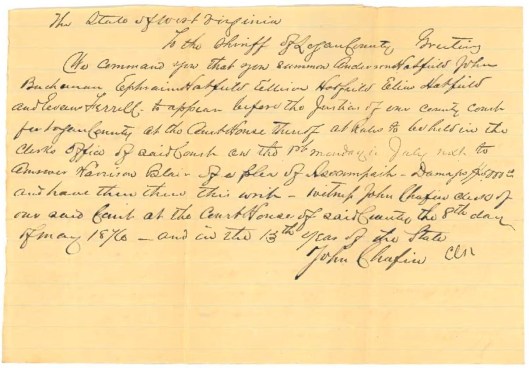 The State of West Virginia
To the Sheriff of Logan County Greeting
We command you that you summon Anderson Hatfield John
Buchanan Ephraim Hatfield Ellison Hatfield Elias Hatfield
and Evans Ferrell to appear before the Justices of our county court
for Logan County at the Court House thereof at rules to be held in the
Clerks office of said Court on the 1st monday in July next to
answer Harrison Blair of a plea of Assumpsit - Damage
and have then there this writ - witness John Chafin clerk of
our said Court at the Court House of said County the 8th day
of may 1876 - and in the 13th year of the State
John Chafin Clk